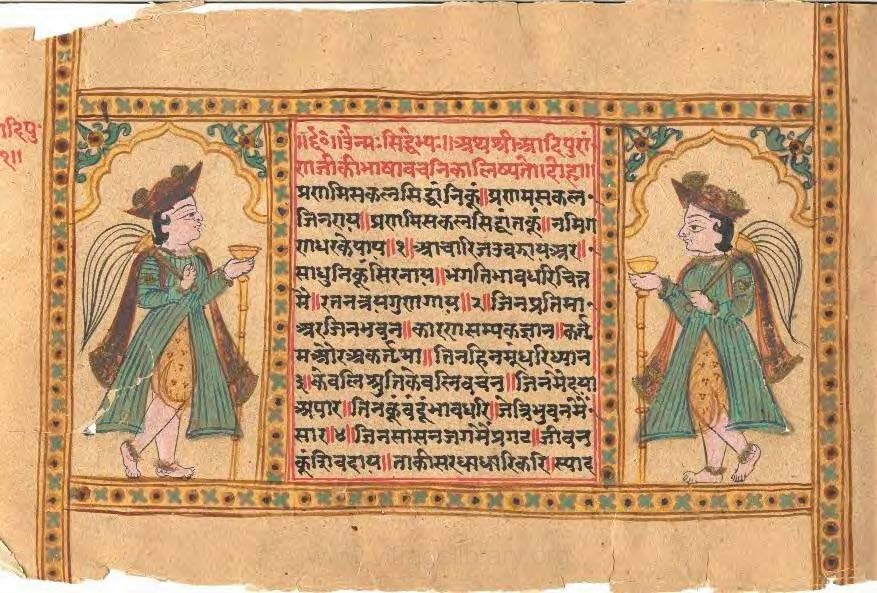 ॥६०॥उँनमःसिद्धेभ्यः॥अथश्रीआदिपुरां
णजीकीभाषावचनिकालिष्यते॥दोहा॥
प्रणमिसकलसिद्धांनिकूं॥प्रणमसकल
जिनराय॥प्रणमिसकलसिद्धांतकूं॥नमिग
णधरकेपाय॥१॥आचारिजउवझायअर॥
साधुनिकूंसिरनाय॥भगतिभावधरिचित्त
मै॥रतनत्रयगुणगाय॥२॥जिनप्रतिमा
अरजिनभवन॥कारणसम्यकज्ञान॥कर्त्त
मऔरअकर्त्तमा॥तिनहिनमूंधरिध्यान
३॥केवलिश्रुतिकेवलिवचन॥जिनमैदया
अपार॥तिनकूंवंदूंभावधरि॥जेत्रिभुवनमैं
सार॥४॥जिनसासनजगमैंप्रगट॥जीवन
कूंशिवदाय॥ताकीसरधाधारिकरि॥स्याद